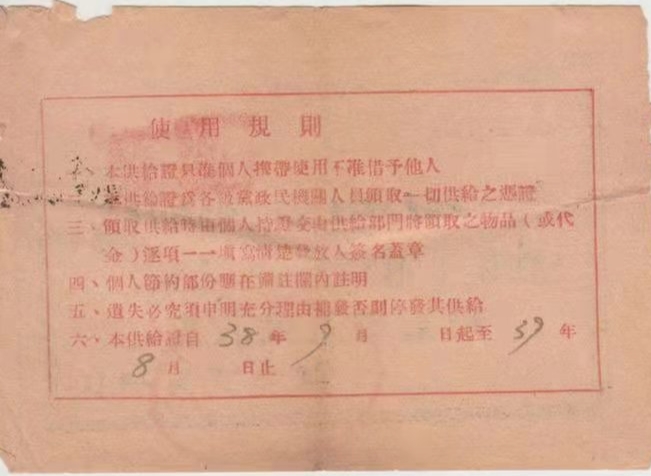 使用規則
本供給證只准個人攜帶使用不准借予他人
供給證爲各級黨政民機關人員領取一切供給之憑證
三、領取供給時由個人持證交由供給部門將領取之物品(或代
金)逐項一一填寫清楚發放人簽名蓋章
四、個人節約部份應在備註欄內註明
五、遺失必究須申明充分理由補發否則停發其供給
六、本供給證自38年9月 日起至39年
8月 日止